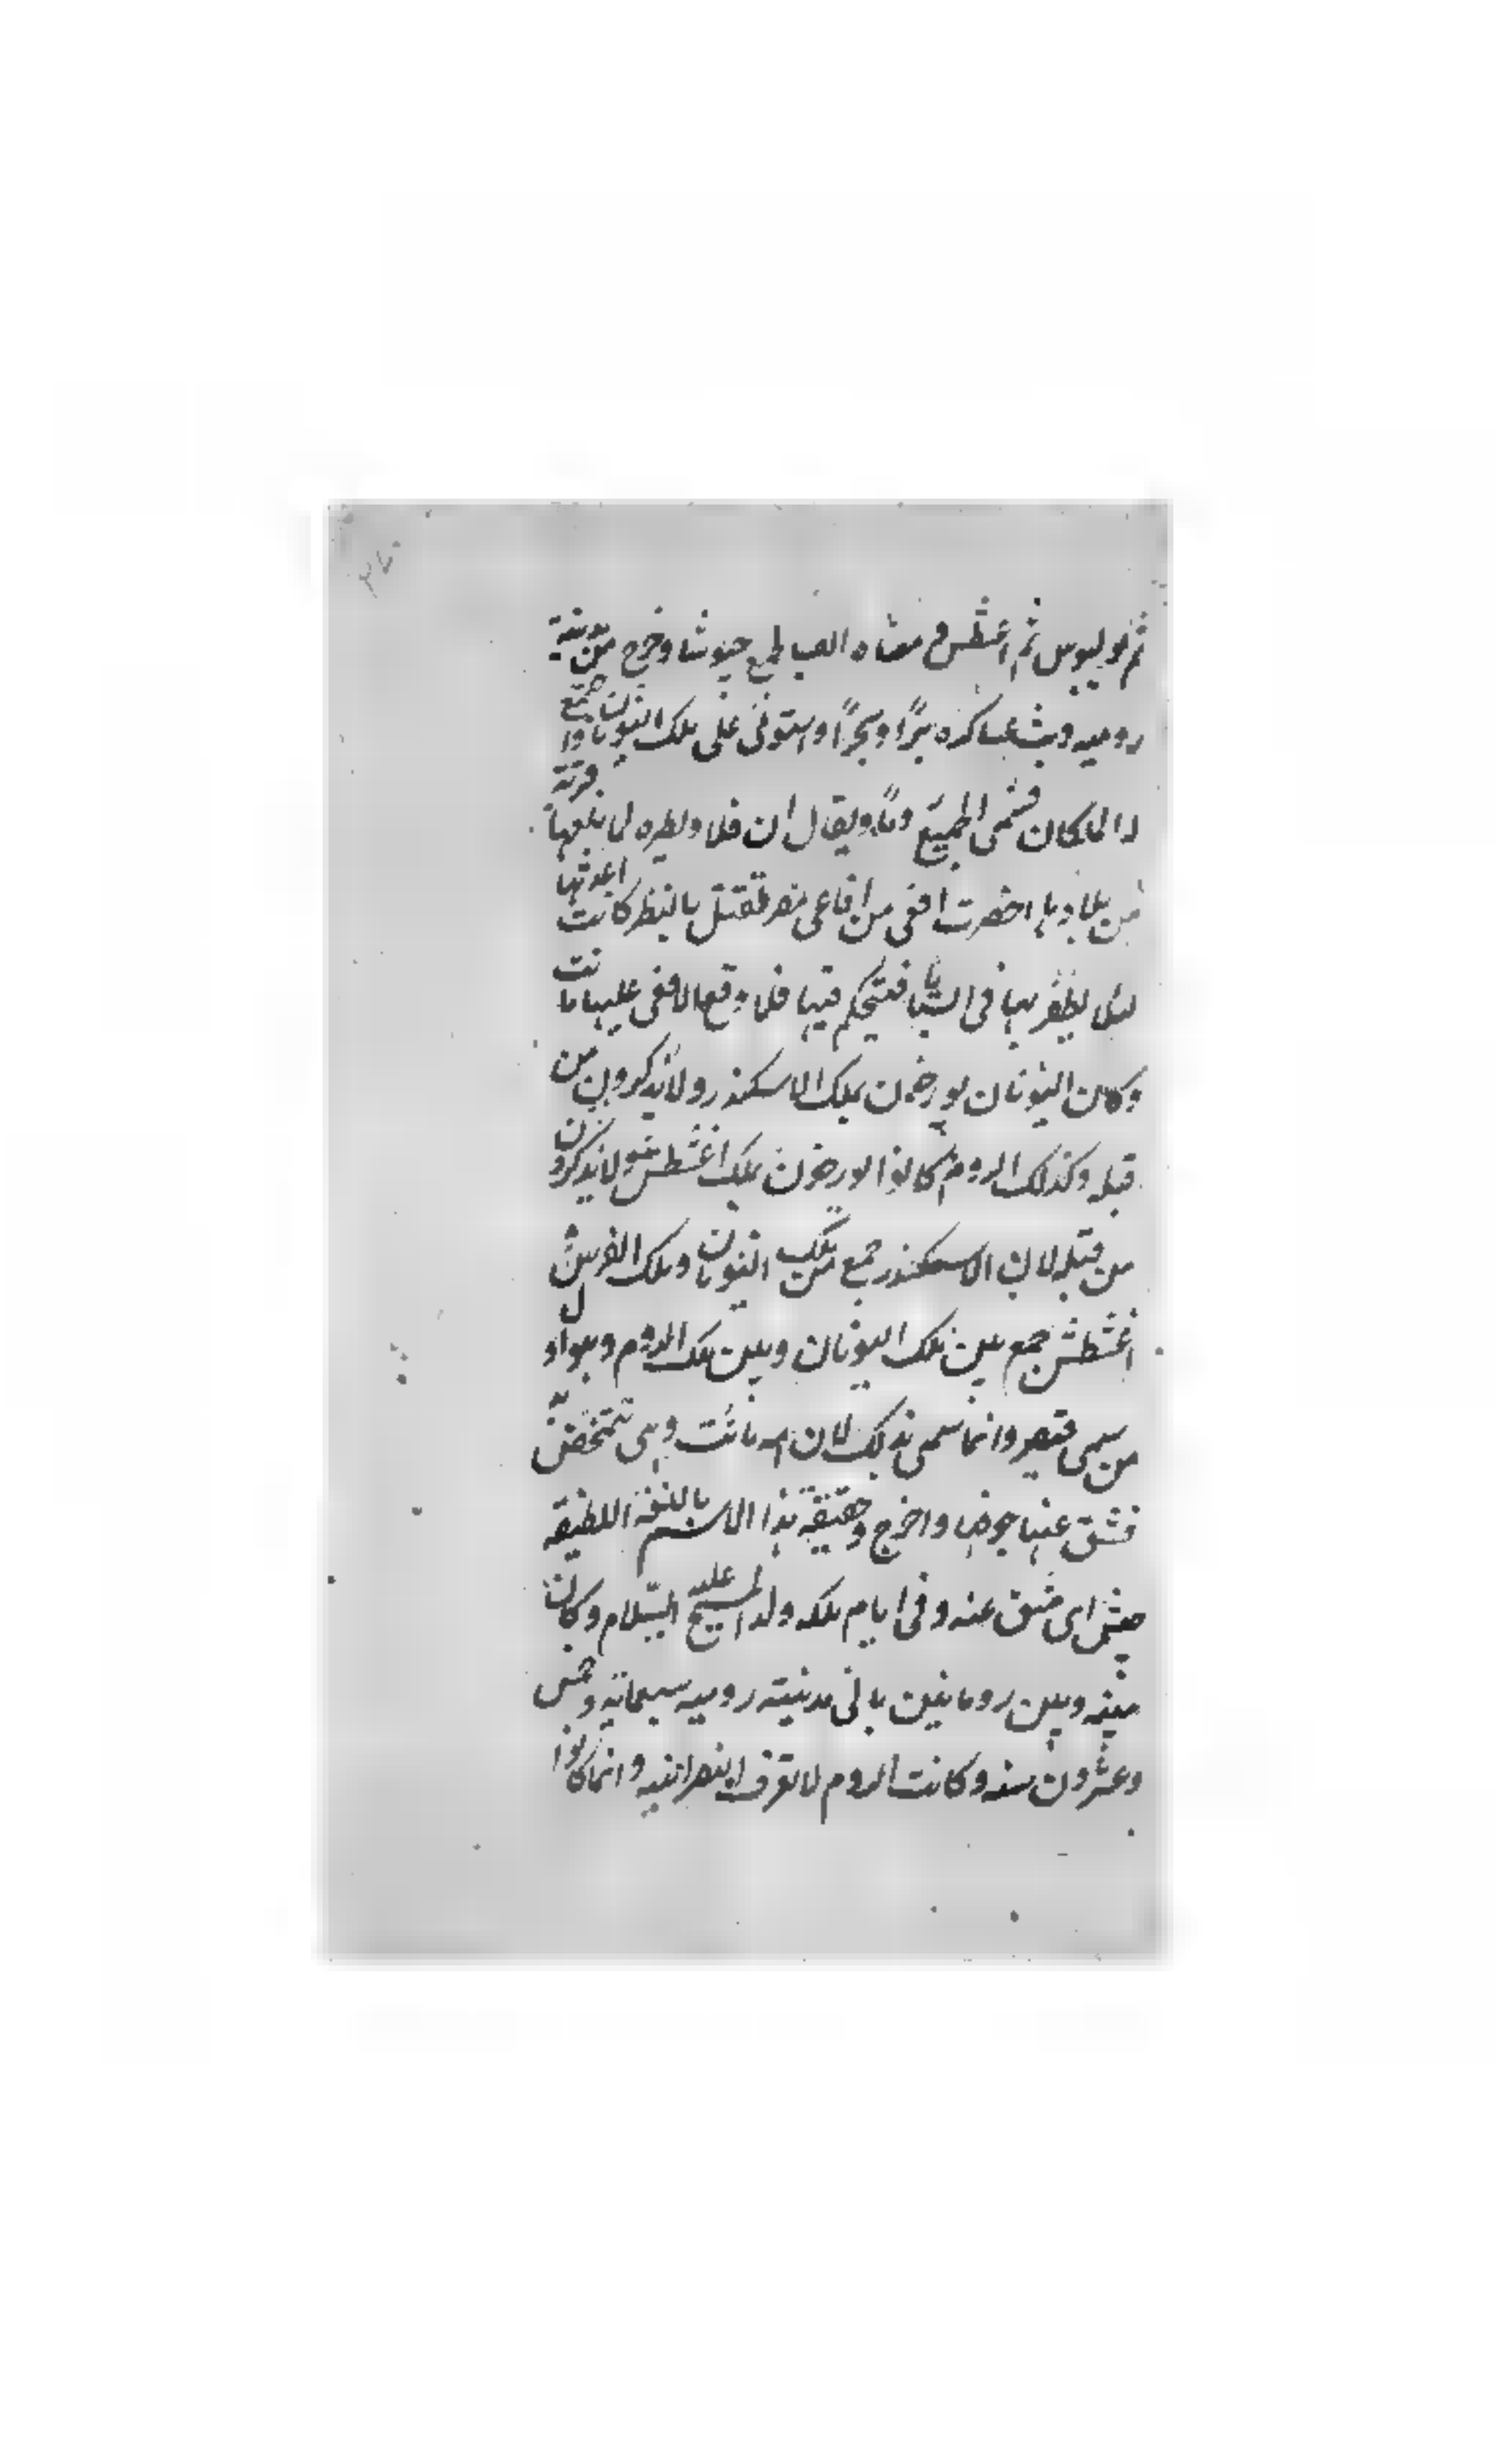 ثم يوليوس ثم اغشطس ومعناه الضيا جمع جيوشا وخرج من مدينة
روميه وبث عساكره برًا وبحرًا واستولى على ملك اليونان واجتمع
له الملكان فسمى الجميع روما ويقال ان قلاوبطره لما بلغها قربه
من بلادها احضرت افعى من افاعى مصر تقتل بالنظر كانت اعدتها
لئلا يظفر بها فى السبايا فيتحكم فيها فلما وقع الافعى عليها ماتت
وكان اليونان يورخون بملك الاسكندر ولا يذكرون من
قبله وكذلك الروم كانوا يورخون بملك اغشطس ولا يذكرون
من قبله لان الاسكندر جمع بين ملك اليونان وملك الفرس
اغشطش جمع بين ملك اليونان وبين ملك الروم وهو اول
من سمى قيصر وانما سمى بذلك لان امه ماتت وهى تتمخض به
فشق عنها جوفها واخرج وحقيقة هذا الاسم باللغة اللطيفه
جيشر اى شق عنه وفى ايام ملكه ولد المسيح عليه السلام وكان
بينه وبين رومانيس بانى مدينته روميه سبعمائة وخمس
وعشرون سنه وكانت الروم لا تعرف النصرانيه وانما كانوا